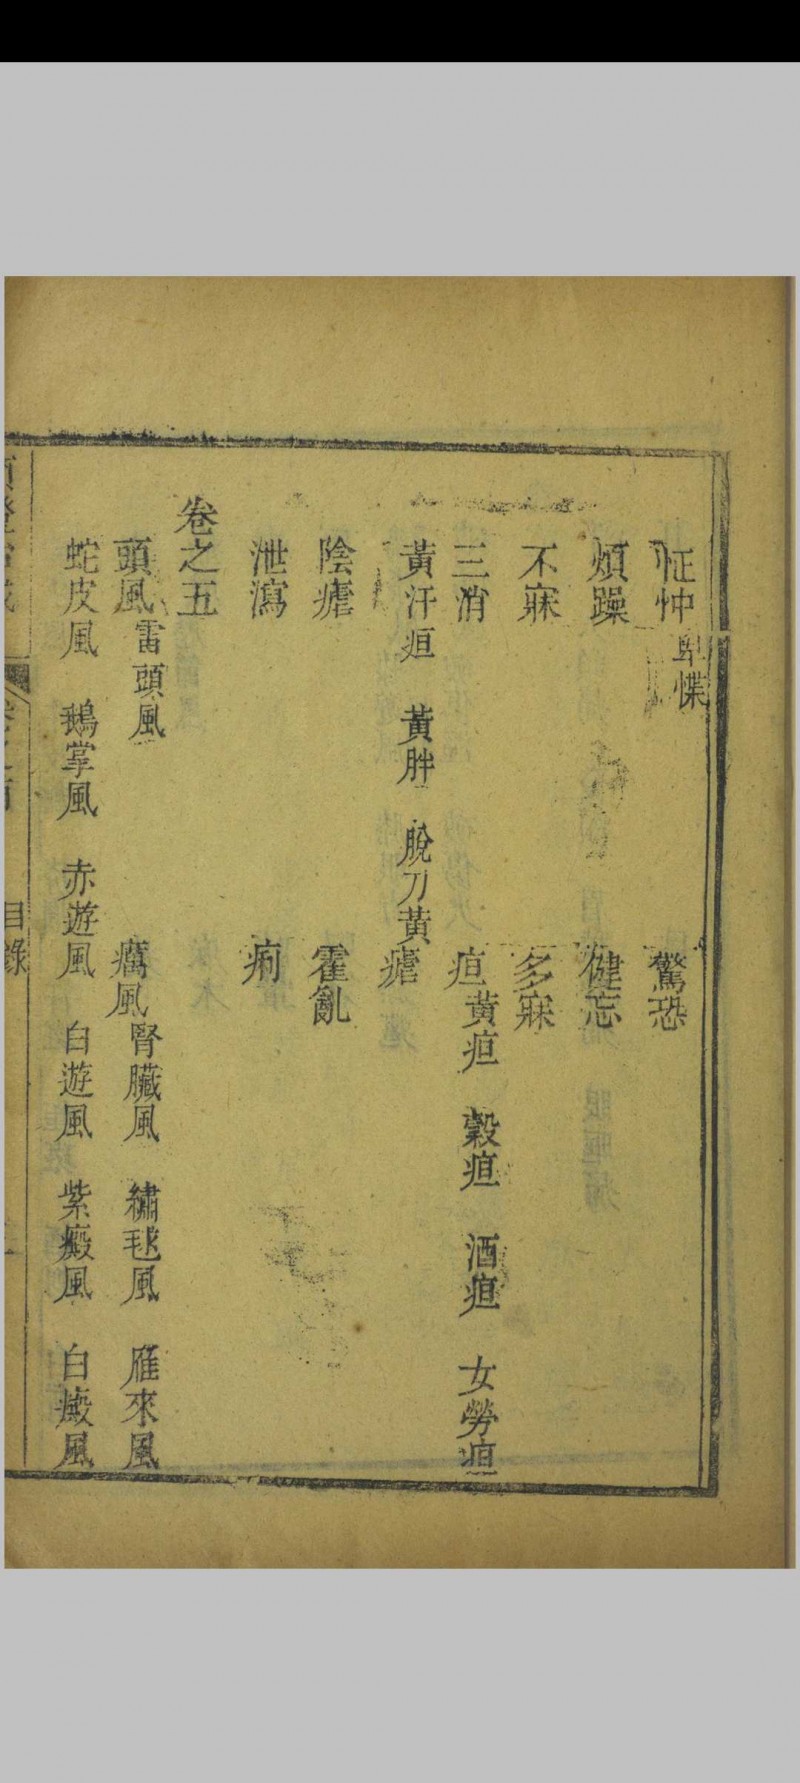 怔忡 卑惵 驚恐
煩躁 健忘
不寐 多寐
三消 疸 黃疸 穀疸 酒疸 女勞疸
黃汗疸 黃胖 脫力黃 瘧
陰瘧 霍亂
泄瀉 痢
卷之五
頭風 雷頭風 癘風 腎臟風 繡毬風 雁來風
蛇皮風 鵝掌風 赤遊風 白遊風 紫癜風 白癜風
目錄